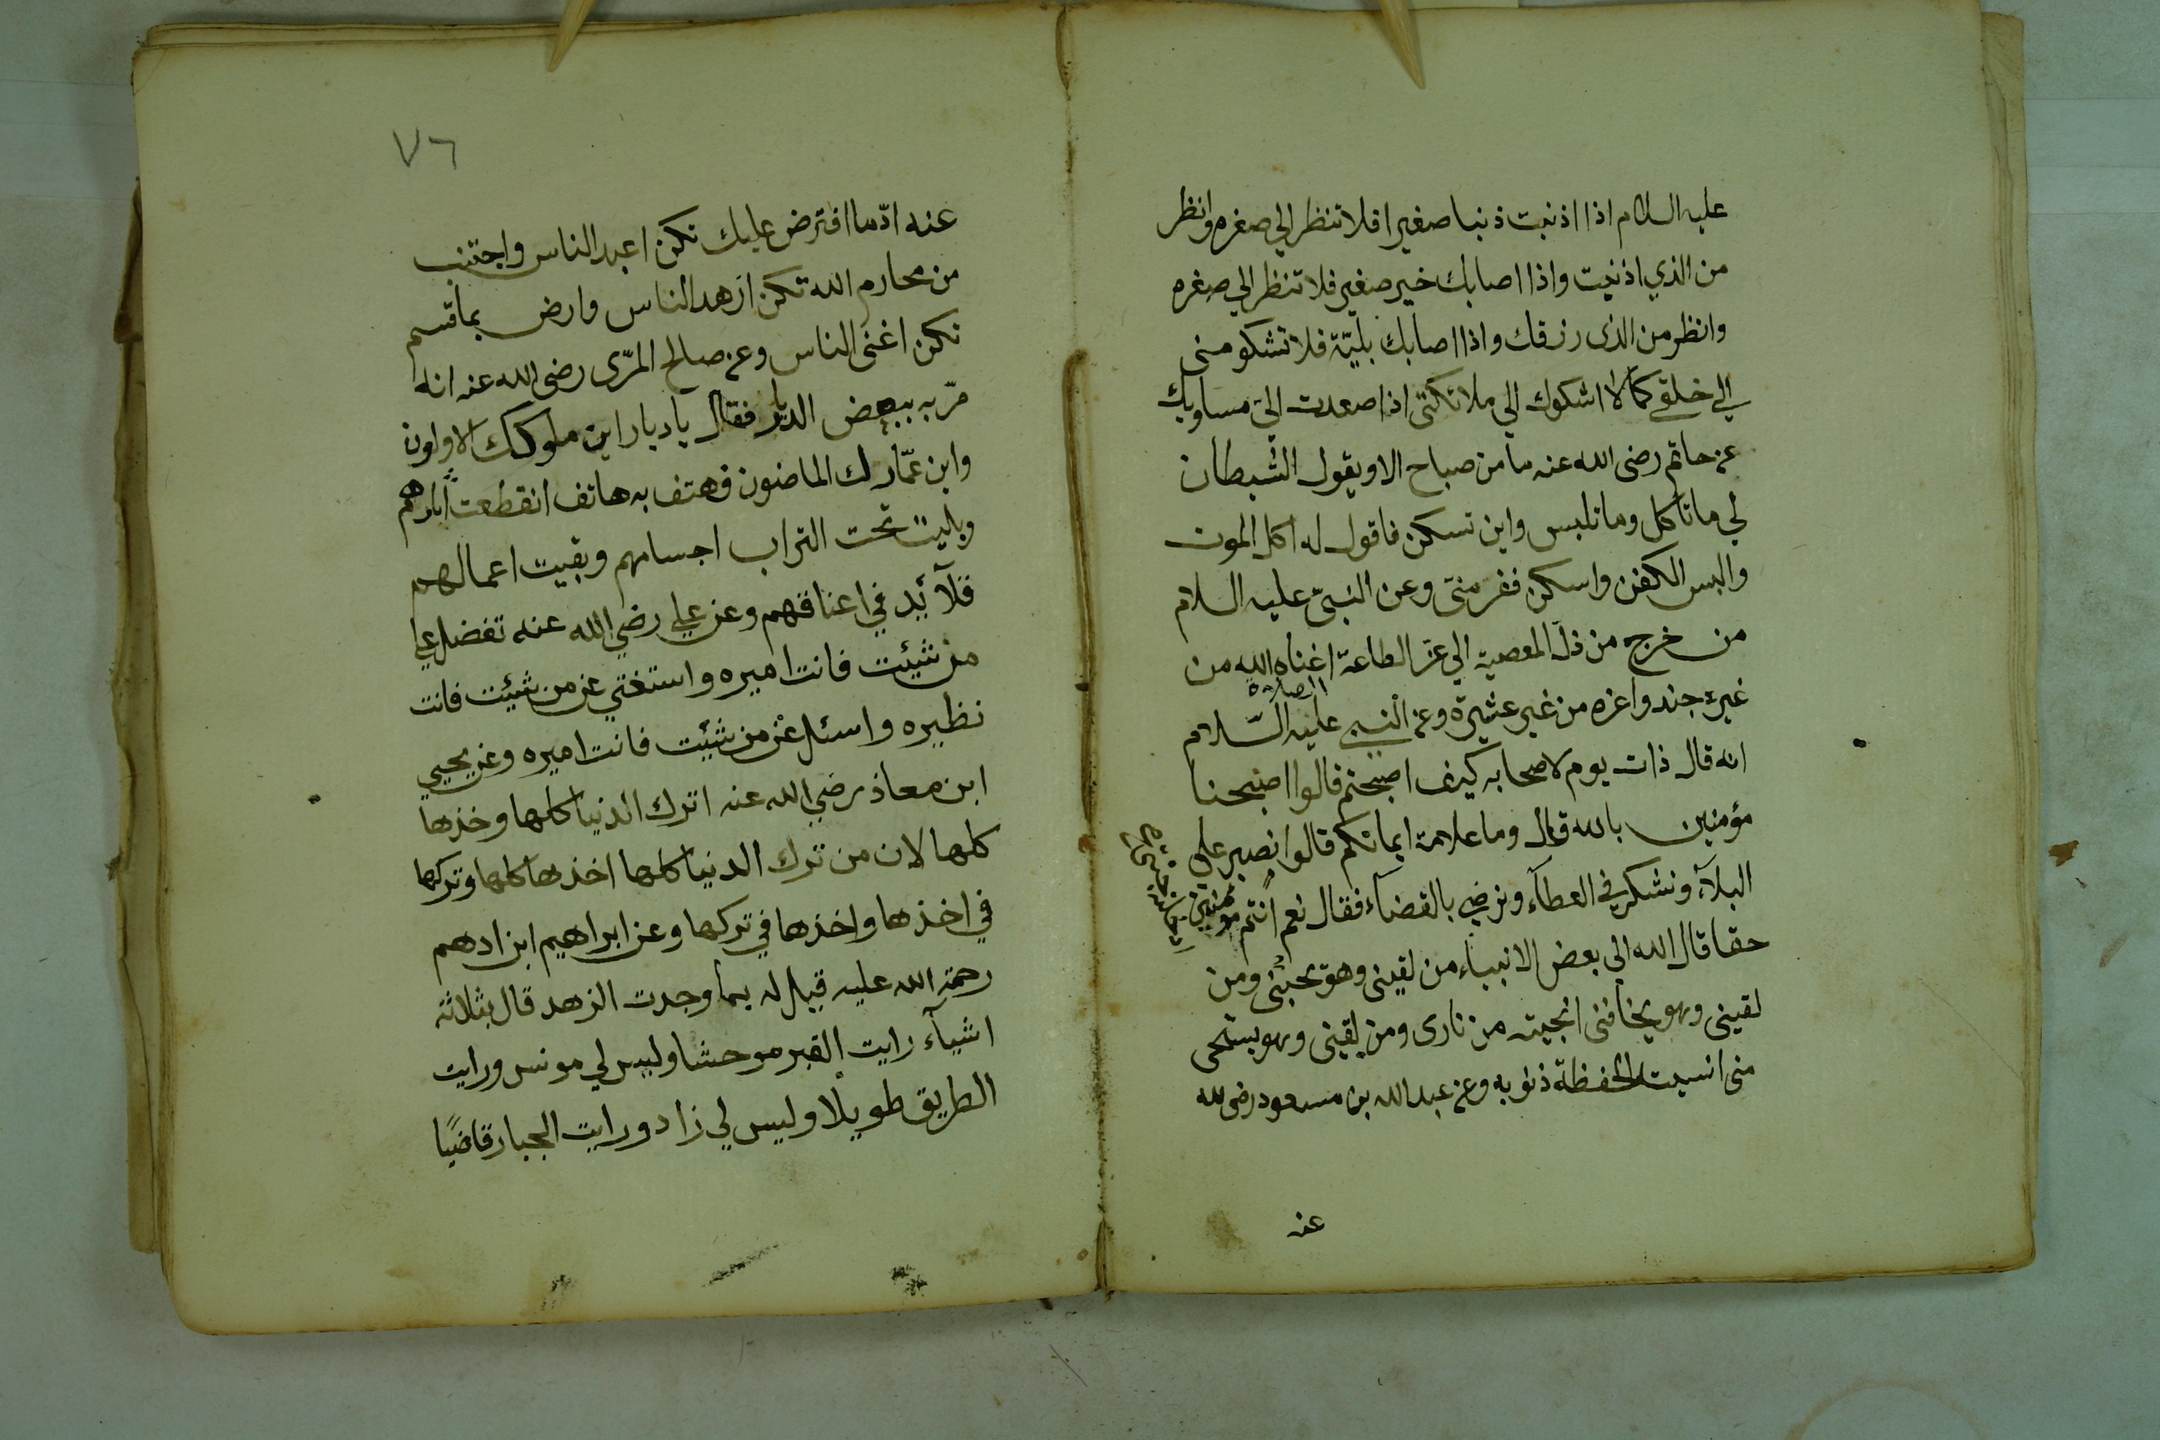 عليه السلام اذا اذنبت ذنبا صغيرا فلا تنظر الي صغره وانظر
من الذي اذنبت واذا اصابك خير صغير فلا تنظر الي صغره
وانظر من الذى رزقك واذا اصابك بليّة فلا تشكو منى
الي خلقى كما لا اشكوك الي ملائكتى اذا صعدت اليّ مساويك
عن حاتم رضى الله عنه ما من صباح الا ويقول الشيطان
لي ما تاكل وما تلبس واين تسكن فاقول له اكل الموت
والبس الكفن واسكن ففر منّى وعن النبىّ عليه السلام
من خرج من ذلّ المعصية الي عزّ الطاعة اغناه الله من
الصلاة
غير جند واعزه من غير عشيرة وعن النبي عليه السّلام
انه قال ذات يوم لاصحابه كيف اصبحتم قالوا اصبحنا
مؤمنين بالله قال وما علامة ايمانكم قالوا نصبر على
البلآء ونشكر في العطآء ونرضي بالقضآء فقال نعم انتم مؤمنين
حقا قال الله الى بعض الانبياء من لقينى وهو يحبّنى ومن
لقينى وهو يخافنى انجيته من نارى ومن لقينى وهو يستحى
منى انسيت الحفظة ذنوبه وعن عبد الله بن مسعود رضى لله
عنه
٧٦
عنه ادّ ما افترض عليك تكن اعبد الناس واجتنب
من محارم الله تكن ازهد الناس وارض بما قسم
تكن اغنى الناس وعن صالح المرّى رضى الله عنه انه
مرّ به ببعض الديار فقال يا ديار اين ملوكك الاولون
واين عمّارك الماضون فهتف به هاتف انقطعت اثارهم
وبليت تحت التراب اجسامهم وبقيت اعمالهم
قلآئد في اعناقهم وعن علي رضي الله عنه تفضل علي
من شيئت فانت اميره واستغني عن من شيئت فانت
نظيره واسئل عن من شيئت فانت اميره وعن يحيي
ابن معاذ رضي الله عنه اترك الدنيا كلها وخذها
كلها لان من ترك الدنيا كلها اخذها كلها وتركها
في اخذها واخذها في تركها وعن ابراهيم ابن ادهم
رحمة الله عليه قيل له بما وجدت الزهد قال بثلاثة
اشيآء رايت القبر موحشا وليس لي مونس ورايت
الطريق طويلا وليس لي زاد ورايت الجبار قاضيًا